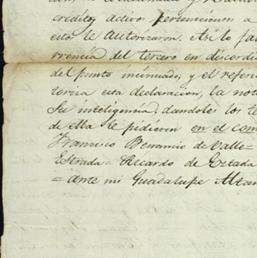 creditos activo pertenecionen a
esta le Autorizaron. Asi lo fa
rrencia del tercero en discordi
del punto insinuado, y el refer
tercia esta declaracion, la not
Su inteligencia, dandoles los te
de ella le pidieron en el com
Francisco Venancio de Valle=
Estrada= Ricardo de Estada
=ante mi Guadalupe Altam